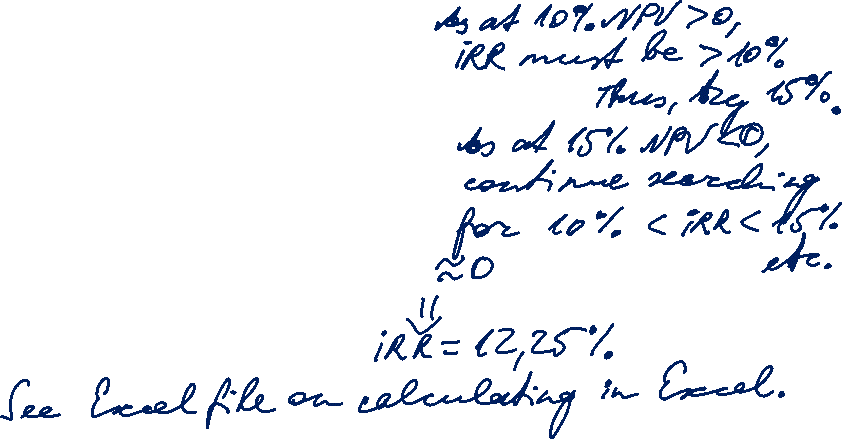 As at 10% NPV>0,
iRR must be >10%
Thus, try 15%.
As at 15% NPV<0,
continue searching
for 10% < iRR < 15%
≈0 etc.
⇓
iRR = 12,25%
See Excel file on calculating in Excel.